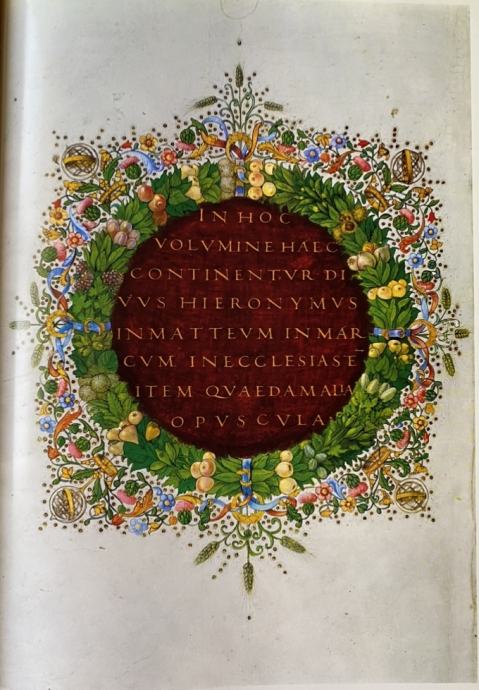 IN HOC
VOLVMINE HAEC
CONTINENTVR DI
VVS HIERONYMVS
INMATTEVM INMAR
CVM INECCLESIASTE
ITEM QVAEDAMALIA
OPVSCVLA